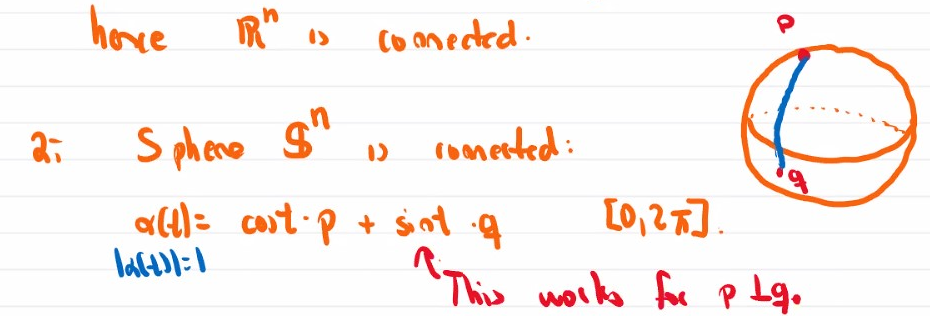 hence ℝⁿ is connected.
p
2: Sphere 𝕊ⁿ is connected:
q
α(t) = cost·p + sint·q [0,2π].
|α(t)|=1
This works for p⊥q.